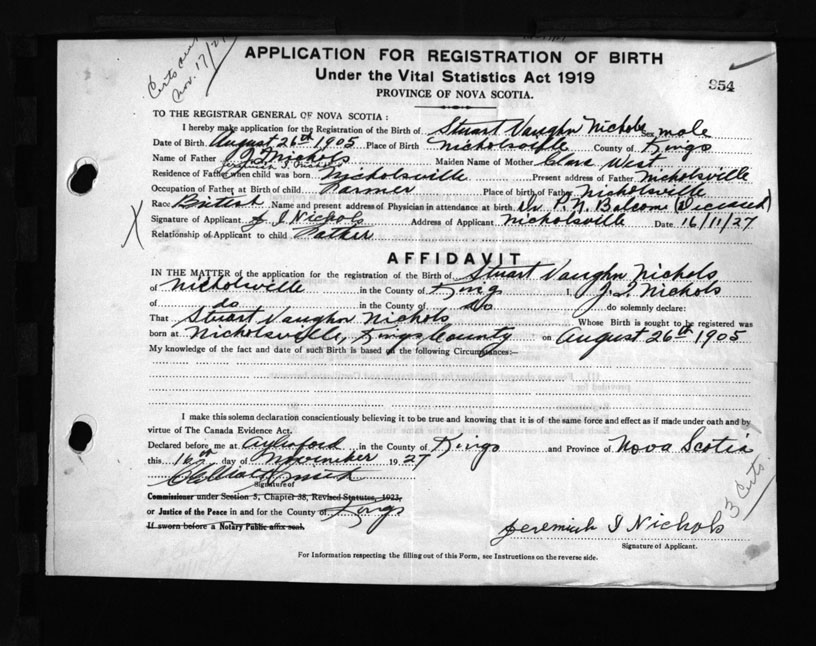 Certs
Nov. 17/27
APPLICATION FOR REGISTRATION OF BIRTH
Under the Vital Statistics Act 1919
954
PROVINCE OF NOVA SCOTIA.
TO THE REGISTRAR GENERAL OF NOVA SCOTIA:
I hereby make application for the Registration of the Birth of Stuart Vaughn Nichols Sex male
Date of Birth August 26th 1905 Place of Birth Nicholsville County of Kings
Name of Father J I Nichols Maiden Name of Mother Clara West
Residence of Father when child was born Nicholsville Present address of Father Nicholsville
Occupation of Father at Birth of child Farmer Place of birth of Father Nicholsville
Race British Name and present address of Physician in attendance at birth Dr P. N. Balcom (Deceased)
Signature of Applicant J I Nichols Address of Applicant Nicholsville Date 16/11/27
Relationship of Applicant to child Father
X
AFFIDAVIT
IN THE MATTER of the application for the registration of the Birth of Stuart Vaughn Nichols
of Nicholsville in the County of Kings I, J. I. Nichols
of do in the County of do do solemnly declare:
That Stuart Vaughn Nichols Whose Birth is sought to be registered was
born at Nicholsville, Kings County on August 26th 1905
My knowledge of the fact and date of such Birth is based on the following Circumstances:—
I make this solemn declaration conscientiously believing it to be true and knowing that it is of the same force and effect as if made under oath and by
virtue of The Canada Evidence Act.
Declared before me at Aylesford in the County of Kings and Province of Nova Scotia
this 16th day of November 1927
3 Certs.
Signature of
Commissioner under Section 5, Chapter 38, Revised Statutes, 1923,
or Justice of the Peace in and for the County of Kings
If sworn before a Notary Public affix seal.
Jeremiah I Nichols
Signature of Applicant.
For Information respecting the filling out of this Form, see Instructions on the reverse side.